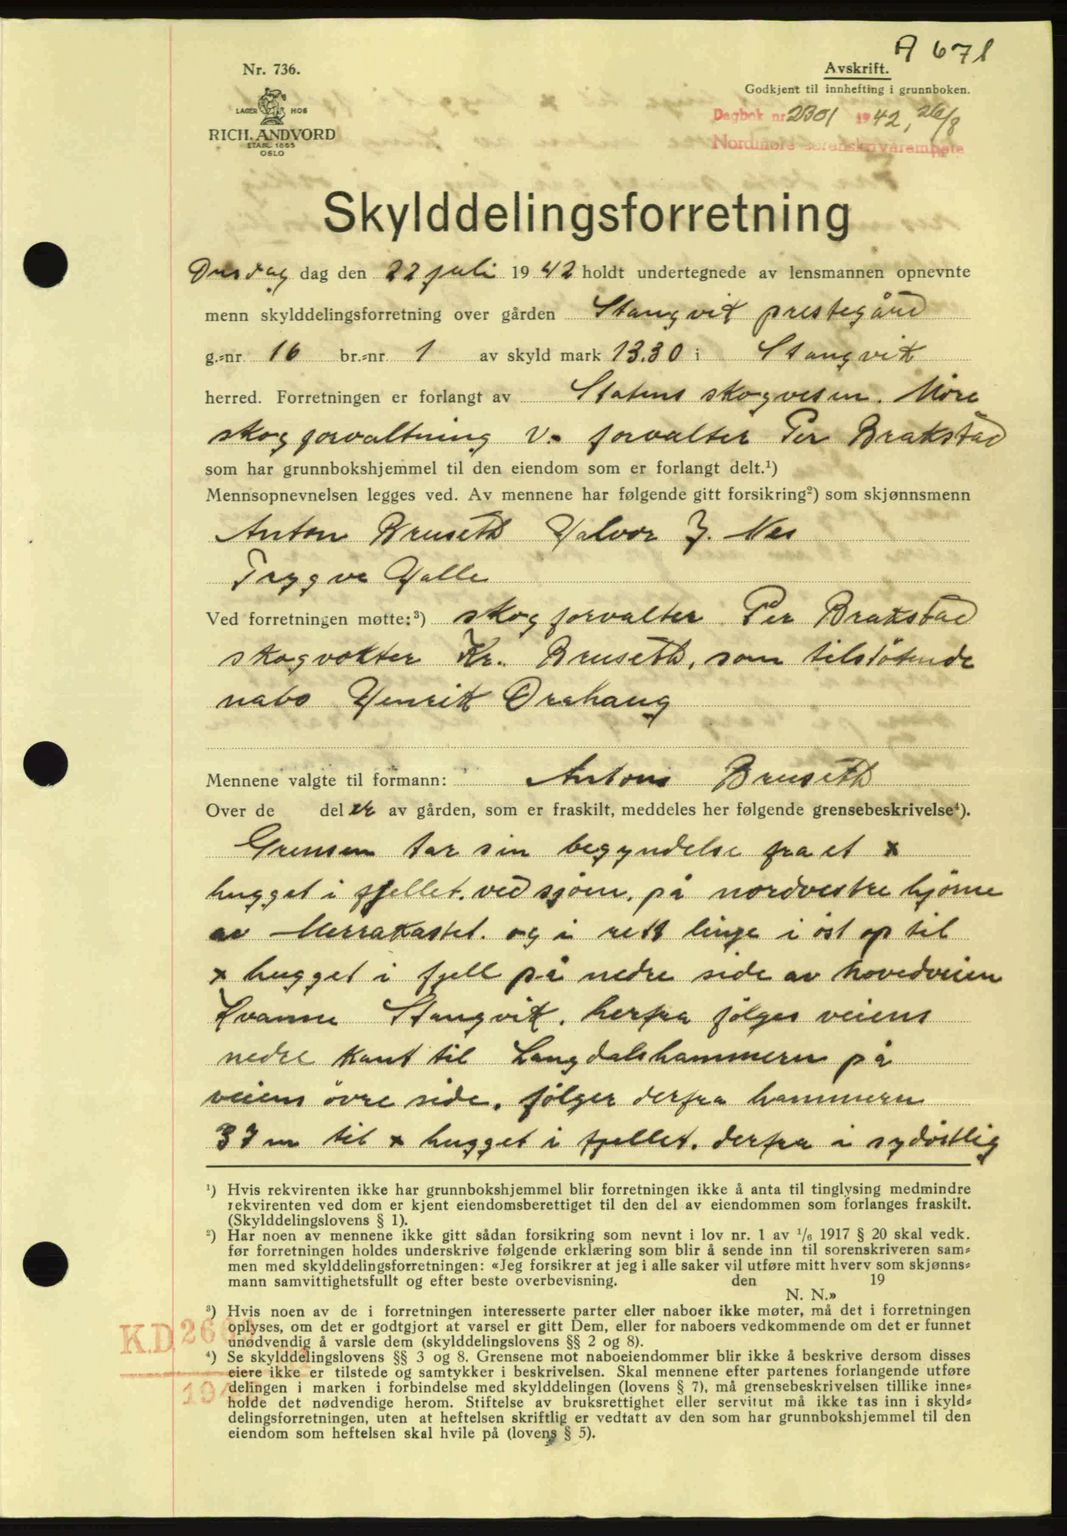 A 671
Nr. 736.
Avskrift.
Godkjent til innhefting i grunnboken.
LAGER HOS
Dagbok nr 2301 1942, 26/8
Nordmøre sorenskriverembete
RICH. ANDVORD
ETABL. 1865
OSLO
Skylddelingsforretning
Onsdag dag den 22 juli 1942 holdt undertegnede av lensmannen opnevnte
menn skylddelingsforretning over gården Stangvik prestegård
g.-nr 16 br.-nr 1 av skyld mark 13.30 i Stangvik
herred. Forretningen er forlangt av Statens skogvesen. Møre
skogforvaltning v. forvalter Per Brakstad
som har grunnbokshjemmel til den eiendom som er forlangt delt.¹)
Mennsopnevnelsen legges ved. Av mennene har følgende gitt forsikring²) som skjønnsmenn
Anton Bruseth Halvor J. Nes
Trygve Halle
Ved forretningen møtte:³) skogforvalter Per Brakstad
skogvokter Kr. Bruseth, som tilstøtende
nabo Henrik Drahaug
Mennene valgte til formann: Anton Bruseth
Over de del er av gården, som er fraskilt, meddeles her følgende grensebeskrivelse⁴).
Grensen tar sin begyndelse fra et x
hugget i fjellet. ved sjøen, på nordvestre hjørne
av Merrakastet. og i rett linje i øst op til
x hugget i fjell på nedre side av hovedveien
Kvanne Stangvik. herfra følges veiens
nedre kant til Langdalshammeren på
veiens övre side. følger derfra hammeren
37 m til x hugget i fjellet. derfra i sydøstlig
¹) Hvis rekvirenten ikke har grunnbokshjemmel blir forretningen ikke å anta til tinglysing medmindre
rekvirenten ved dom er kjent eiendomsberettiget til den del av eiendommen som forlanges fraskilt.
(Skylddelingslovens § 1).
²) Har noen av mennene ikke gitt sådan forsikring som nevnt i lov nr. 1 av 1/6 1917 § 20 skal vedk.
før forretningen holdes underskrive følgende erklæring som blir å sende inn til sorenskriveren sam-
men med skylddelingsforretningen: «Jeg forsikrer at jeg i alle saker vil utføre mitt hverv som skjønns-
mann samvittighetsfullt og efter beste overbevisning. den 19
N. N.»
³) Hvis noen av de i forretningen interesserte parter eller naboer ikke møter, må det i forretningen
oplyses, om det er godtgjort at varsel er gitt Dem, eller for naboers vedkommende om det er funnet
unødvendig å varsle dem (skylddelingslovens §§ 2 og 8).
K.D.
⁴) Se skylddelingslovens §§ 3 og 8. Grensene mot naboeiendommer blir ikke å beskrive dersom disses
eiere ikke er tilstede og samtykker i beskrivelsen. Skal mennene efter partenes forlangende utføre
delingen i marken i forbindelse med skylddelingen (lovens § 7), må grensebeskrivelsen tillike inne-
holde det nødvendige herom. Stiftelse av bruksrettighet eller servitut må ikke tas inn i skyld-
delingsforretningen, uten at heftelsen skriftlig er vedtatt av den som har grunnbokshjemmel til den
eiendom som heftelsen skal hvile på (lovens § 5).